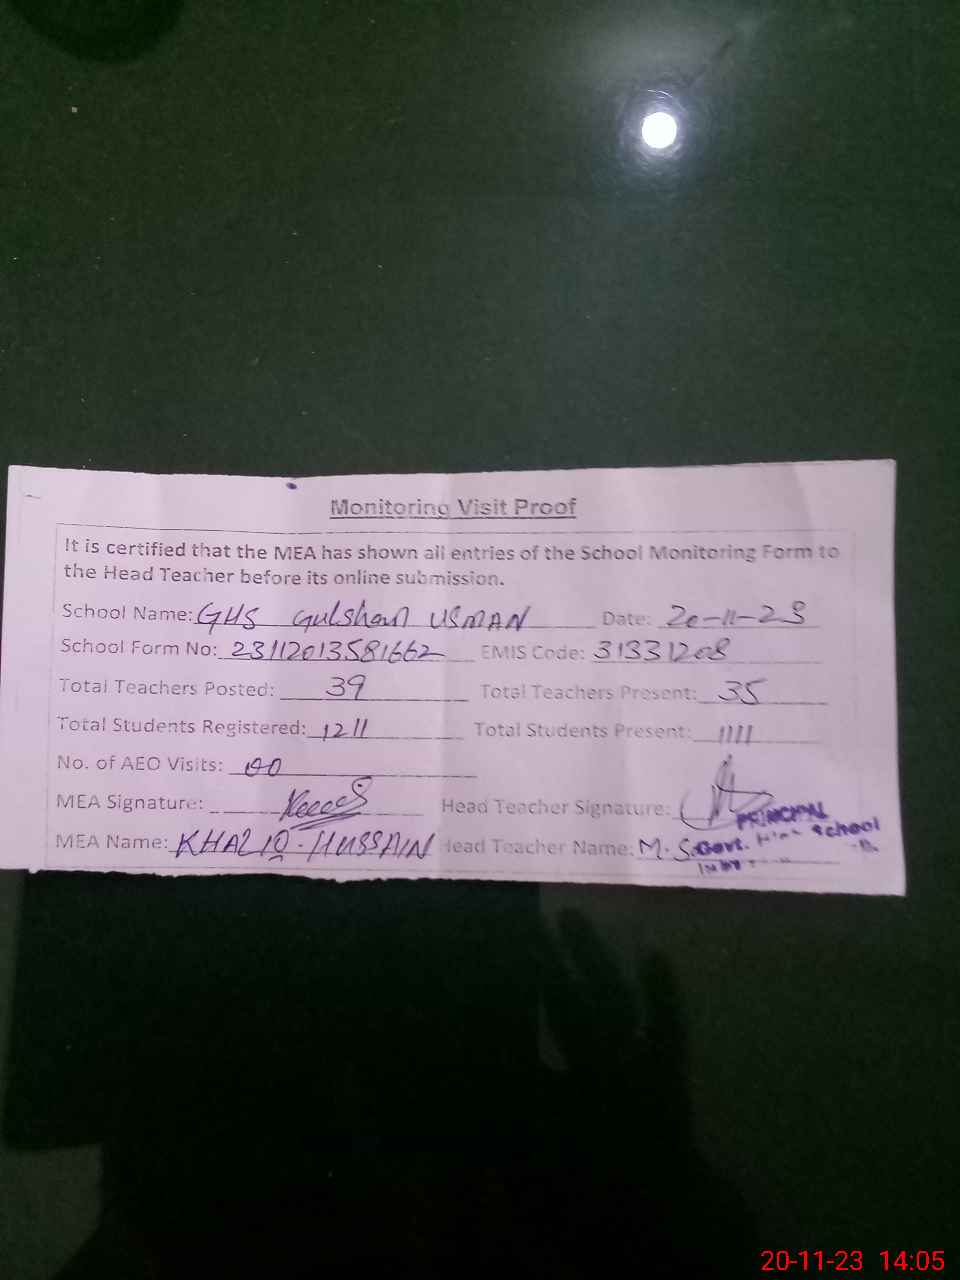 Monitoring Visit Proof
It is certified that the MEA has shown all entries of the School Monitoring Form to
the Head Teacher before its online submission.
School Name: GHS Gulshan USMAN Date: 20-11-23
School Form No: 23112013581662 EMIS Code: 31331208
Total Teachers Posted: 39 Total Teachers Present: 35
Total Students Registered: 1211 Total Students Present: 1111
No. of AEO Visits: 00
MEA Signature: Head Teacher Signature:
PRINCIPAL
MEA Name: KHALIQ. HUSSAIN Head Teacher Name: M.
Govt. High School
20-11-23 14:05